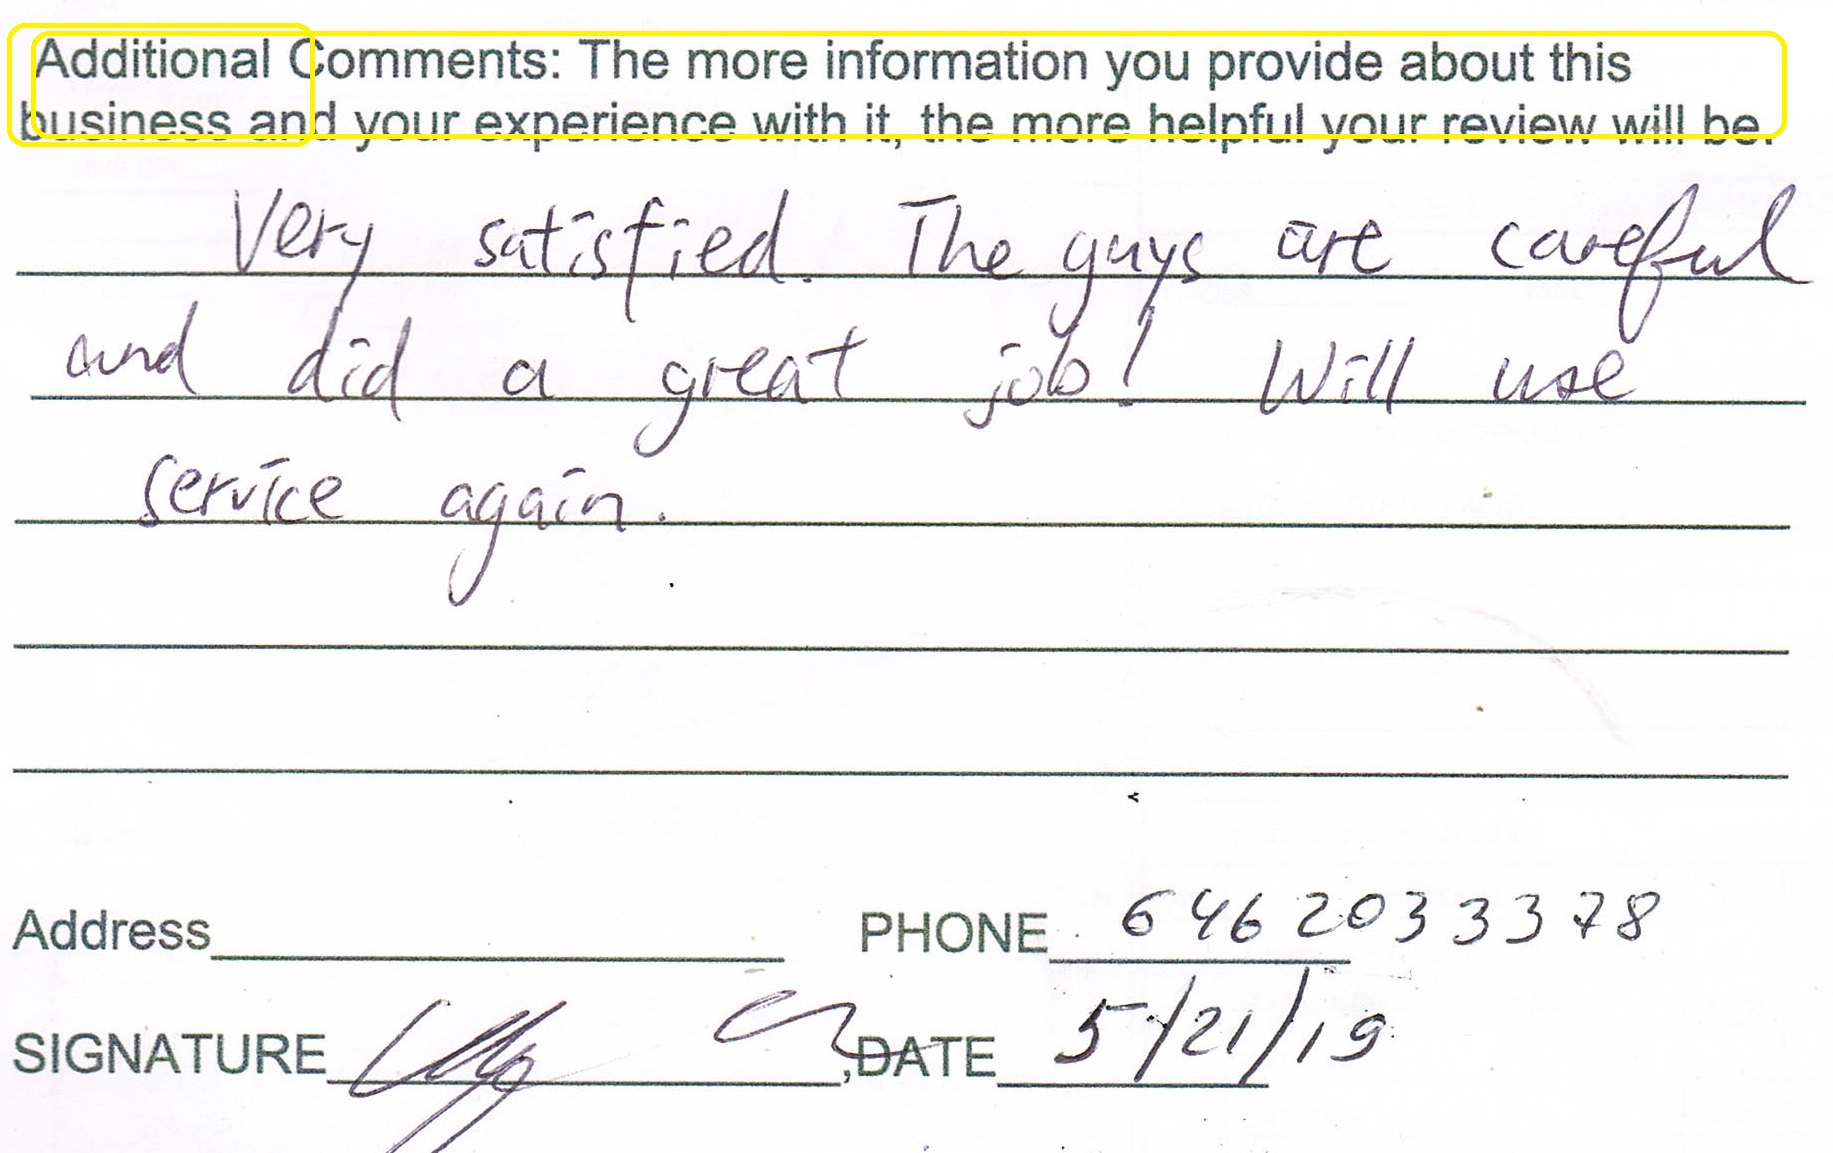 Additional Comments: The more information you provide about this
business and your experience with it, the more helpful your review will be.
Very satisfied. The guys are careful
and did a great job! Will use
service again.
Address PHONE 6462033378
SIGNATURE ,DATE 5/21/19